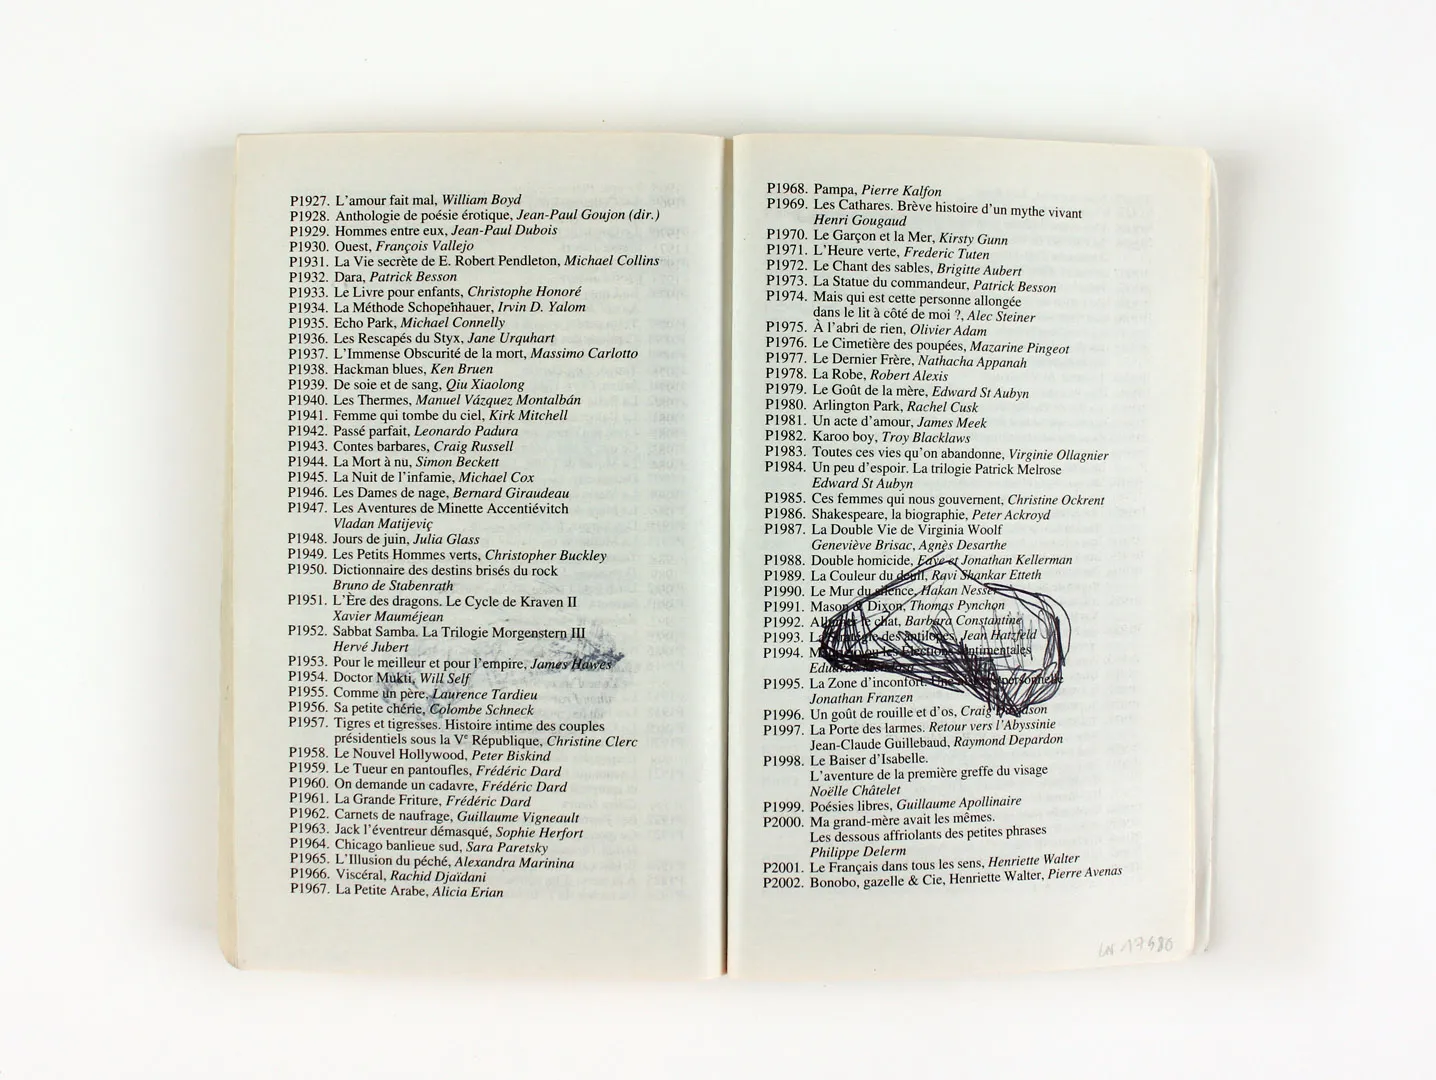 P1927. L'amour fait mal, William Boyd
P1928. Anthologie de poésie érotique, Jean-Paul Goujon (dir.)
P1929. Hommes entre eux, Jean-Paul Dubois
P1930. Ouest, François Vallejo
P1931. La Vie secrète de E. Robert Pendleton, Michael Collins
P1932. Dara, Patrick Besson
P1933. Le Livre pour enfants, Christophe Honoré
P1934. La Méthode Schopenhauer, Irvin D. Yalom
P1935. Echo Park, Michael Connelly
P1936. Les Rescapés du Styx, Jane Urquhart
P1937. L'Immense Obscurité de la mort, Massimo Carlotto
P1938. Hackman blues, Ken Bruen
P1939. De soie et de sang, Qiu Xiaolong
P1940. Les Thermes, Manuel Vázquez Montalbán
P1941. Femme qui tombe du ciel, Kirk Mitchell
P1942. Passé parfait, Leonardo Padura
P1943. Contes barbares, Craig Russell
P1944. La Mort à nu, Simon Beckett
P1945. La Nuit de l'infamie, Michael Cox
P1946. Les Dames de nage, Bernard Giraudeau
P1947. Les Aventures de Minette Accentiévitch
Vladan Matijeviç
P1948. Jours de juin, Julia Glass
P1949. Les Petits Hommes verts, Christopher Buckley
P1950. Dictionnaire des destins brisés du rock
Bruno de Stabenrath
P1951. L'Ère des dragons. Le Cycle de Kraven II
Xavier Mauméjean
P1952. Sabbat Samba. La Trilogie Morgenstern III
Hervé Jubert
P1953. Pour le meilleur et pour l'empire, James Hawes
P1954. Doctor Mukti, Will Self
P1955. Comme un père, Laurence Tardieu
P1956. Sa petite chérie, Colombe Schneck
P1957. Tigres et tigresses. Histoire intime des couples
présidentiels sous la Ve République, Christine Clerc
P1958. Le Nouvel Hollywood, Peter Biskind
P1959. Le Tueur en pantoufles, Frédéric Dard
P1960. On demande un cadavre, Frédéric Dard
P1961. La Grande Friture, Frédéric Dard
P1962. Carnets de naufrage, Guillaume Vigneault
P1963. Jack l'éventreur démasqué, Sophie Herfort
P1964. Chicago banlieue sud, Sara Paretsky
P1965. L'Illusion du péché, Alexandra Marinina
P1966. Viscéral, Rachid Djaïdani
P1967. La Petite Arabe, Alicia Erian
P1968. Pampa, Pierre Kalfon
P1969. Les Cathares. Brève histoire d'un mythe vivant
Henri Gougaud
P1970. Le Garçon et la Mer, Kirsty Gunn
P1971. L'Heure verte, Frederic Tuten
P1972. Le Chant des sables, Brigitte Aubert
P1973. La Statue du commandeur, Patrick Besson
P1974. Mais qui est cette personne allongée
dans le lit à côté de moi ?, Alec Steiner
P1975. À l'abri de rien, Olivier Adam
P1976. Le Cimetière des poupées, Mazarine Pingeot
P1977. Le Dernier Frère, Nathacha Appanah
P1978. La Robe, Robert Alexis
P1979. Le Goût de la mère, Edward St Aubyn
P1980. Arlington Park, Rachel Cusk
P1981. Un acte d'amour, James Meek
P1982. Karoo boy, Troy Blacklaws
P1983. Toutes ces vies qu'on abandonne, Virginie Ollagnier
P1984. Un peu d'espoir. La trilogie Patrick Melrose
Edward St Aubyn
P1985. Ces femmes qui nous gouvernent, Christine Ockrent
P1986. Shakespeare, la biographie, Peter Ackroyd
P1987. La Double Vie de Virginia Woolf
Geneviève Brisac, Agnès Desarthe
P1988. Double homicide, Faye et Jonathan Kellerman
P1989. La Couleur du deuil, Ravi Shankar Etteth
P1990. Le Mur du silence, Hakan Nesser
P1991. Mason & Dixon, Thomas Pynchon
P1992. Allumer le chat, Barbara Constantine
P1993. La Stratégie des antilopes, Jean Hatzfeld
P1994. ou les Élections sentimentales
P1995. La Zone d'inconfort. Une histoire personnelle
Jonathan Franzen
P1996. Un goût de rouille et d'os, Craig Davidson
P1997. La Porte des larmes. Retour vers l'Abyssinie
Jean-Claude Guillebaud, Raymond Depardon
P1998. Le Baiser d'Isabelle.
L'aventure de la première greffe du visage
Noëlle Châtelet
P1999. Poésies libres, Guillaume Apollinaire
P2000. Ma grand-mère avait les mêmes.
Les dessous affriolants des petites phrases
Philippe Delerm
P2001. Le Français dans tous les sens, Henriette Walter
P2002. Bonobo, gazelle & Cie, Henriette Walter, Pierre Avenas